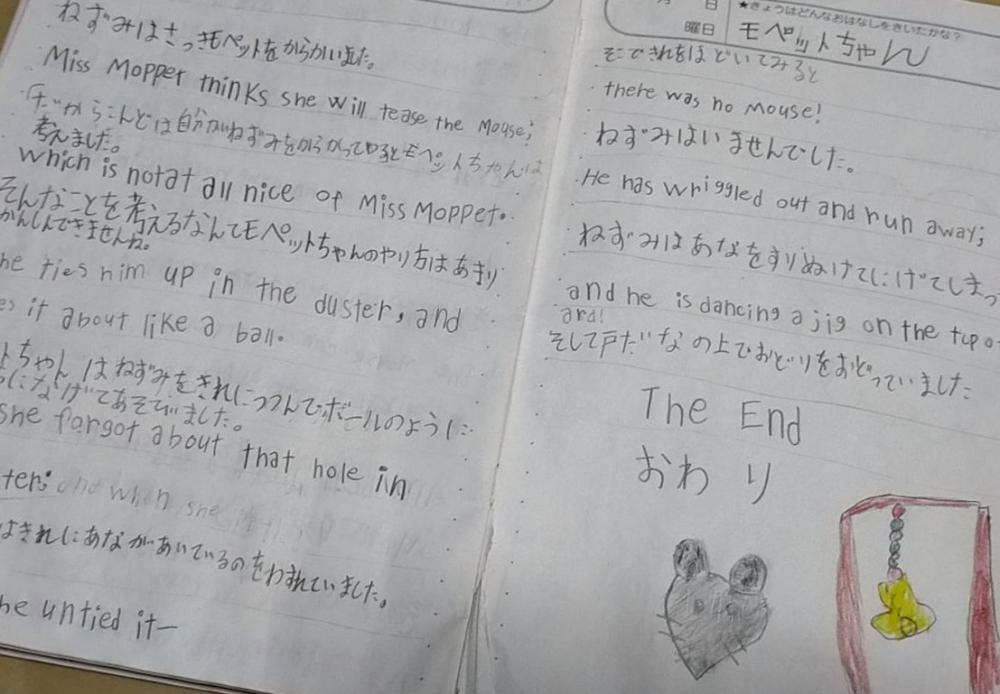 ねずみはさっきモペットをからかいました。
Miss Moppet thinks she will tease the Mouse;
だからこんどは自分がねずみをからかってやるとモペットちゃんは
考えました。
which is not at all nice of Miss Moppet.
そんなことを考えるなんてモペットちゃんのやり方はあまり
かんしんできませんね。
he ties him up in the duster, and
es it about like a ball.
トちゃんはねずみをきれにつつんでボールのように
になげてあそでいました。
she forgot about that hole in
ter; and when she
はきれにあながあいているのをわすれていました。
he untied it—
日
曜日
★きょうはどんなおはなしをきいたかな？
モペットちゃん
そこできれをほどいてみると
there was no Mouse!
ねずみはいませんでした。
He has wriggled out and run away;
ねずみはあなをすりぬけてにげてしまっ
and he is dancing a jig on the top o
ard!
そして戸だなの上でおどりをおどっていました
The End
おわり